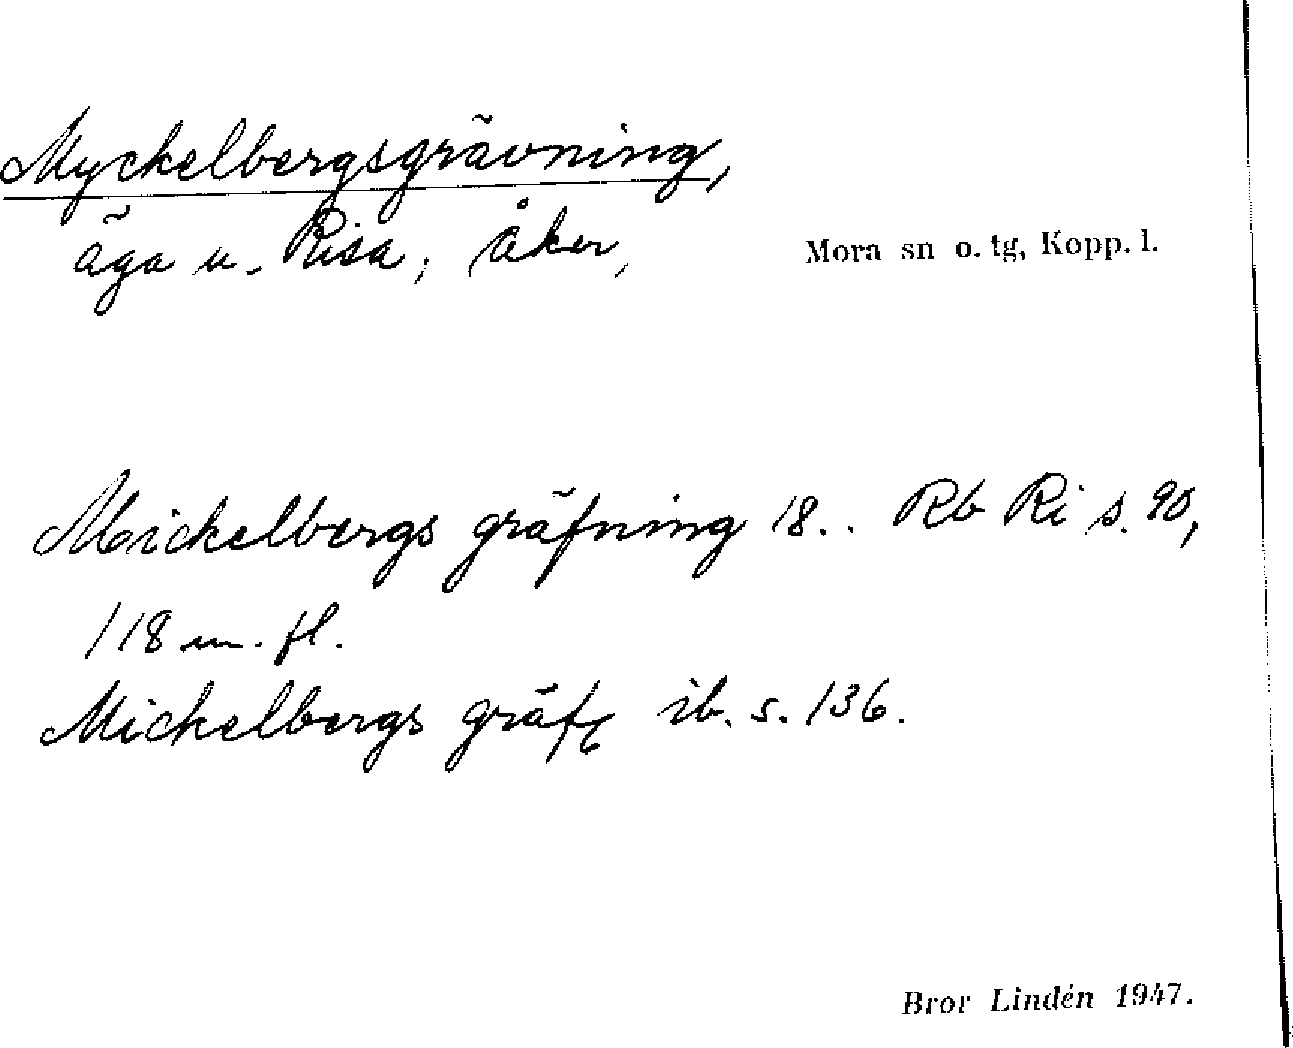 Myckelbergsgrävning,
äga u. Risa; åker,
Mora sn o. tg, Kopp. l.
Mickelbergs gräfning 18.. Rb Ri s. 90,
118 m. fl.
Mickelbergs gräfg ib. s. 136.
Bror Lindén 1947.